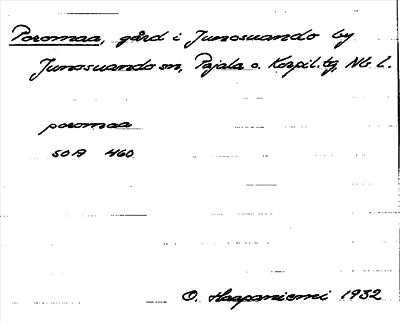 Poromaa, gård i Junosuando by
Junosuando sn, Pajala o. Korpil. tg, Nb. l.
poromaa
SOA 460
O. Haapaniemi 1932